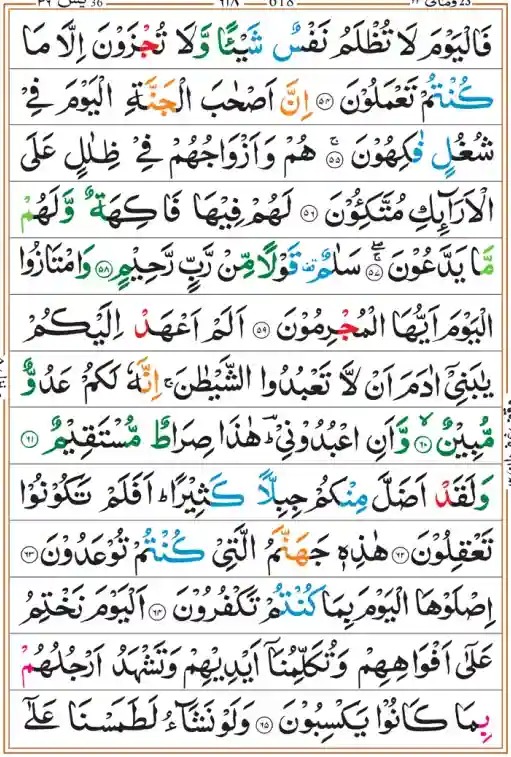 فَالْیَوْمَ لَا تُظْلَمُ نَفْسٌ شَیْـًٔا وَّلَا تُجْزَوْنَ اِلَّا مَا
كُنْتُمْ تَعْمَلُوْنَ ۝۵۴ اِنَّ اَصْحٰبَ الْجَنَّةِ الْیَوْمَ فِیْ
شُغُلٍ فٰكِهُوْنَ ۝۵۵ۚ هُمْ وَاَزْوَاجُهُمْ فِیْ ظِلٰلٍ عَلَی
الْاَرَآىِٕكِ مُتَّكِـُٔوْنَ ۝۵۶ لَهُمْ فِیْهَا فَاكِهَةٌ وَّلَهُمْ
مَّا یَدَّعُوْنَ ۝۵۷ۚۖ سَلٰمٌ ۫ قَوْلًا مِّنْ رَّبٍّ رَّحِیْمٍ ۝۵۸ وَامْتَازُوا
الْیَوْمَ اَیُّهَا الْمُجْرِمُوْنَ ۝۵۹ اَلَمْ اَعْهَدْ اِلَیْكُمْ
یٰبَنِیْۤ اٰدَمَ اَنْ لَّا تَعْبُدُوا الشَّیْطٰنَ ۚ اِنَّهٗ لَكُمْ عَدُوٌّ
مُّبِیْنٌ ۝۶۰ۙ وَّاَنِ اعْبُدُوْنِیْ ؔؕ هٰذَا صِرَاطٌ مُّسْتَقِیْمٌ ۝۶۱
وَلَقَدْ اَضَلَّ مِنْكُمْ جِبِلًّا كَثِیْرًا ؕ اَفَلَمْ تَكُوْنُوْا
تَعْقِلُوْنَ ۝۶۲ هٰذِهٖ جَهَنَّمُ الَّتِیْ كُنْتُمْ تُوْعَدُوْنَ ۝۶۳
اِصْلَوْهَا الْیَوْمَ بِمَا كُنْتُمْ تَكْفُرُوْنَ ۝۶۴ اَلْیَوْمَ نَخْتِمُ
عَلٰۤی اَفْوَاهِهِمْ وَتُكَلِّمُنَاۤ اَیْدِیْهِمْ وَتَشْهَدُ اَرْجُلُهُمْ
بِمَا كَانُوْا یَكْسِبُوْنَ ۝۶۵ وَلَوْ نَشَآءُ لَطَمَسْنَا عَلٰۤی